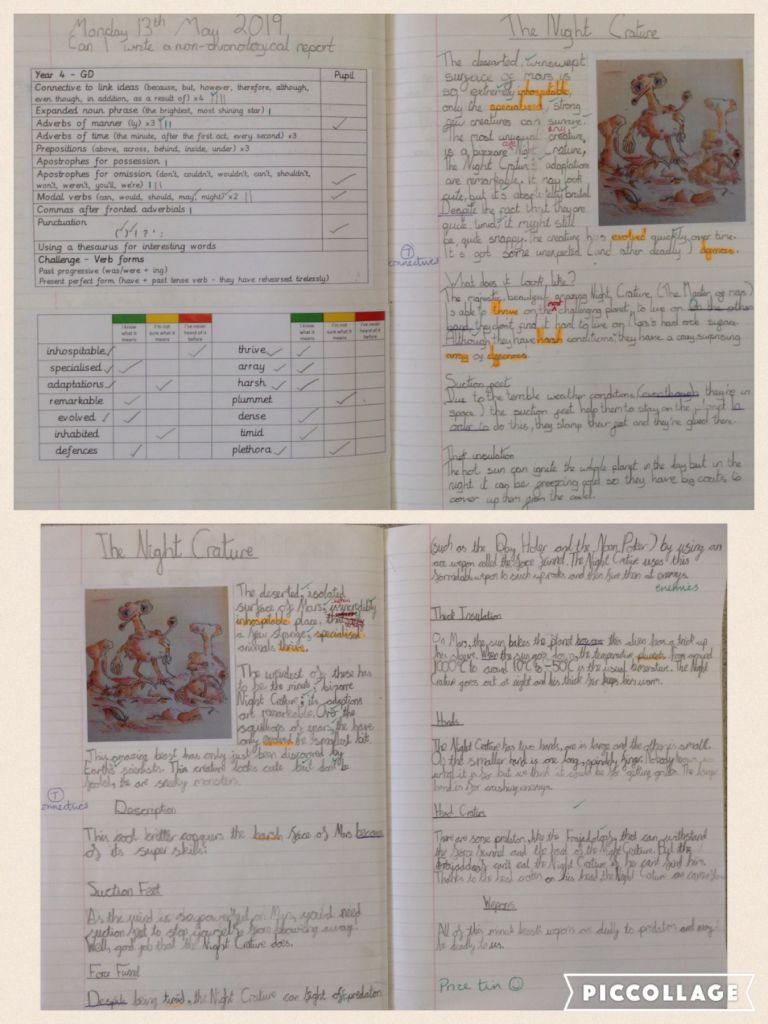 Monday 13th May 2019
Can I write a non-chronological report
Year 4 - GD
Pupil
Connective to link ideas (because, but, however, therefore, although,
even though, in addition, as a result of) x4
Expanded noun phrase (the brightest, most shining star)
Adverbs of manner (ly) x3
Adverbs of time (the minute, after the first act, every second) x3
Prepositions (above, across, behind, inside, under) x3
Apostrophes for possession
Apostrophes for omission (don't, couldn't, wouldn't, can't, shouldn't,
won't, weren't, you'll, we're)
Modal verbs (can, would, should, may, might) x2
Commas after fronted adverbials
Punctuation
Using a thesaurus for interesting words
Challenge - Verb forms
Past progressive (was/were + ing)
Present perfect form (have + past tense verb - they have rehearsed tirelessly)
I know what it means
I'm not sure what it means
I've never heard of it before
I know what it means
I'm not sure what it means
I've never heard of it before
inhospitable thrive
specialised array
adaptations harsh
remarkable plummet
evolved dense
inhabited timid
defences plethora
The Night Crature
The desarted, windswept
surface of Mars is
so extremely inhospitable,
only the specialised, strong
few creatures can survive.
The most unusual creature,
is a bizzare Night Crature,
The Night Crature's adaptations
are remarkable. It may look
cute, but it's absolutely brutal
Despite the fact that they are
quite timid, it might still
be, quite snappy. The creature has evolved quickly over time.
It's got some unexpected (and other deadly) defences.
T
connectives
What does it look like?
The majestic, beautiful amazing Night Crature, (The Master of mars)
is able to thrive on the challenging planet, to live on On the other
hand they don't find it hard to live on Mars's hard rock surface.
Although they have harsh conditions, they have a very surprising
array of defences.
Suction feet
Due to the terrible weather conditions (eventhough they're in
space) the suction feet help them to stay on the planet In
order to do this, they stamp their feet and they're glued there.
Thick insulation
The hot sun can ignite the whole planet in the day but in the
night it can be freezing cold so they have big coats to
cover up them from the cold.
The Night Crature
The deserted, isolated
surface of Mars,
inhospitable place,
a few strange, specialised
animals thrive.
The weirdest of these has
to be the minute, bizarre
Night Crature; its adaptions
are remarkable. Over the
squillions of years, the have
only evolved the smallest bit.
This amazing beast has only just been discovered by
Earth's scientists. This creature looks cute but don't be
fooled, he are sneaky monster.
T
connectives
Description
This cool critter conquers the harsh face of Mars because
of its super skills:
Suction Feet
As the wind is so powerful on Mars, you'd need
suction feet to stop yourself from blowing away!
Well, good job that the Night Crature does.
Force Funnel
Despite being timid, the Night Crature can fight of predators
(such as the Day Hater and the Moon Poker) by using an
ace wepon called the force funnel. The Night Crature uses this
formidable wepon to such up rocks and then fire them at enemys.
enemies
Thick Insulation
On Mars, the sun bakes the planet however this alien has a trick up
his sleeve. When the sun goes down, the temperature plumets from around
1000°C to around 10°C to -50°C is the usual temperature. The Night
Crature goes out at night and his thick fur keeps him warm.
Hands
The Night Crature has two hands, one is large and the other is small.
On the smaller hand is one long, spindly finger. Nobody knows
what it is for but we think it could be for getting grubs. The larger
hand is for crushing enemys.
Head Crater
There are some predators, like the that can withstand
the force funnel and the hand of the Night Crature. But the
can't eat the Night Crature if he cant find him.
Thanks to the head crater on his head the Night Crature can
Weapons
All of this minute beasts wepons are deadly to predators and may
be deadly to us.
Prize tin
PICCOLLAGE